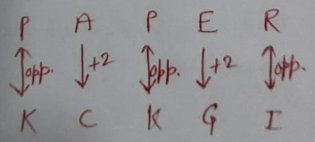 P A P E R
opp. +2 opp. +2 opp.
K C K G I